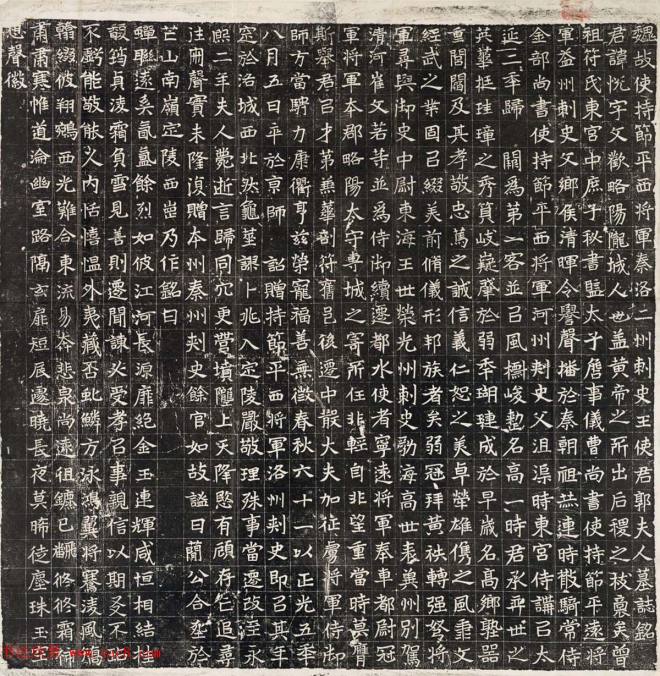 魏故使持節平西將軍秦洛二州刺史王使君郭夫人墓誌銘
君諱悦字文歡略陽隴城人也蓋黄帝之所出后稷之枝裔矣曾
祖符氏東宫中庶子秘書監太子詹事儀曹尚書使持節平遠將
軍益州刺史父鄉侯清暉令譽聲播於秦朝祖恭連時散騎常侍
金部尚書使持節平西將軍河州刺史父沮渠時東宫侍講㠯太
延二年歸闕爲第一客並㠯風標峻整名高一時君承弈世之
英蕤挺珪璋之秀質岐嶷肇於弱年瑚璉成於早歲名髙鄉塾器
重閭閻及其孝敬忠篤之誠信義仁恕之美卓犖雄儁之風秉文
經武之業固㠯綴美前脩儀形邦族者矣弱冠拜黄袟轉强弩將
軍尋與御史中尉東海王世榮光州刺史勃海高世表兾州別駕
清河崔文若等並爲侍御續遷都水使者寧遠將軍奉車都尉冠
軍將軍本郡略陽太守專城之寄所任非輕自非望重當時莫膺
斯舉君㠯才第蕪華剖符舊邑後遷中散大夫加征虜將軍侍御
師方當騁力康衢亨兹榮寵福善無徴春秋六十一以正光五年
八月五日卒於京師詔贈持節平西將軍洛州刺史即㠯其年
窆於洛城西北然龜莖謬卜兆入定陵嚴敬理殊事當遷故至永
熙二年夫人薨逝言歸同穴更營墳隴上天降愍有頒存亡追尋
注冊聲實未隆復贈本州秦州刺史餘官如故謚曰蕳公合窆於
芒山南嶺定陵西崗乃作銘曰
蟬聯遠系氤氲餘烈如彼江河長源靡絶金玉連輝咸恒相結桂
馥筠貞淩霜負雪見善則遷聞諫必受孝㠯事親信以期友不玷
不虧能敬能久内恬憘愠外夷藏否虬鱗方泳鴻翼將騫淩風
翻綴彼翔鵷西光難合東流易奔悲泉尚遠徂鑣已飜修修霜
肅肅寒惟道淪幽室路隔玄扉短辰遽曉長夜莫晞徒塵珠玉
聲徽